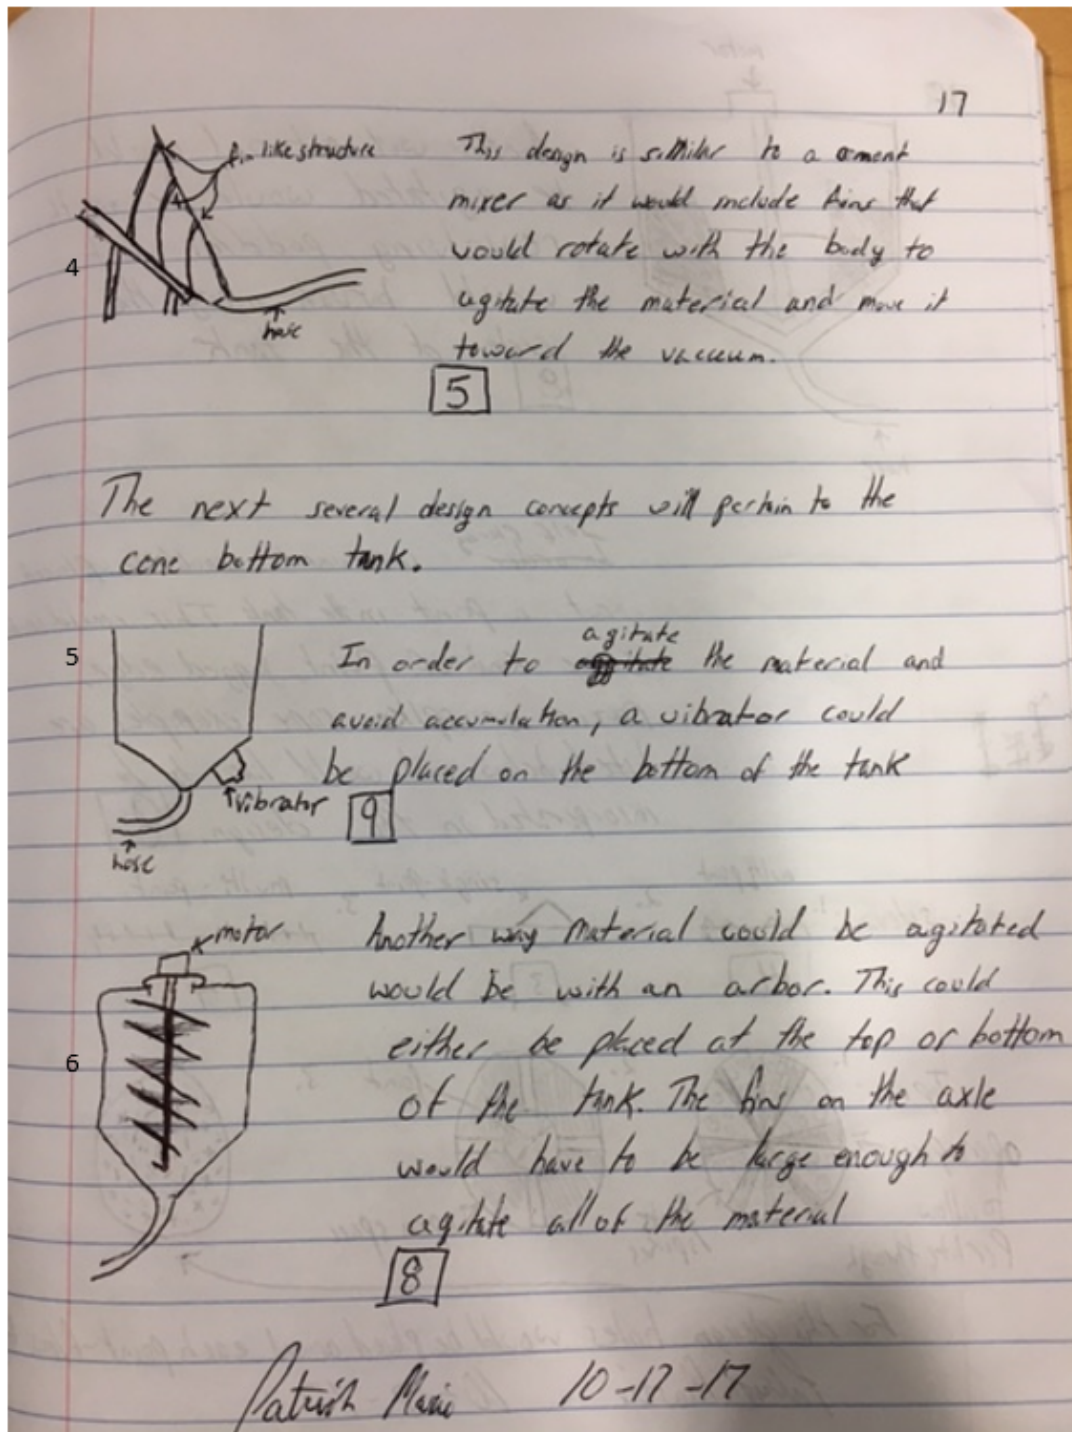 17
fin like structure
This design is sillilar to a cement
mixer as it would include fins that
4
would rotate with the body to
agitate the material and move it
hose
toward the vaccum.
5
The next several design concepts will pertain to the
cone bottom tank.
5
agitate
In order to the material and
avoid accumulation, a vibrator could
be placed on the bottom of the tank
vibrator
9
hose
motor
Another way material could be agitated
would be with an arbor. This could
either be placed at the top or bottom
6
of the tank. The fins on the axle
would have to be large enough to
agitate all of the material
8
10-17-17